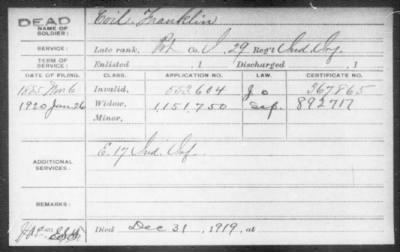 DEAD
NAME OF SOLDIER: Coil, Franklin
SERVICE: Late rank, Co. 29 Reg't Ind. Inf.
TERM OF SERVICE: Enlisted , 1 Discharged , 1
DATE OF FILING. CLASS. APPLICATION NO. LAW. CERTIFICATE NO.
Invalid, 553,604 367865
1920 Jan 26 Widow, 1,151,750 892717
Minor,
ADDITIONAL SERVICES: E. 17 Ind. Inf.
REMARKS:
Died Dec 31, 1919, at